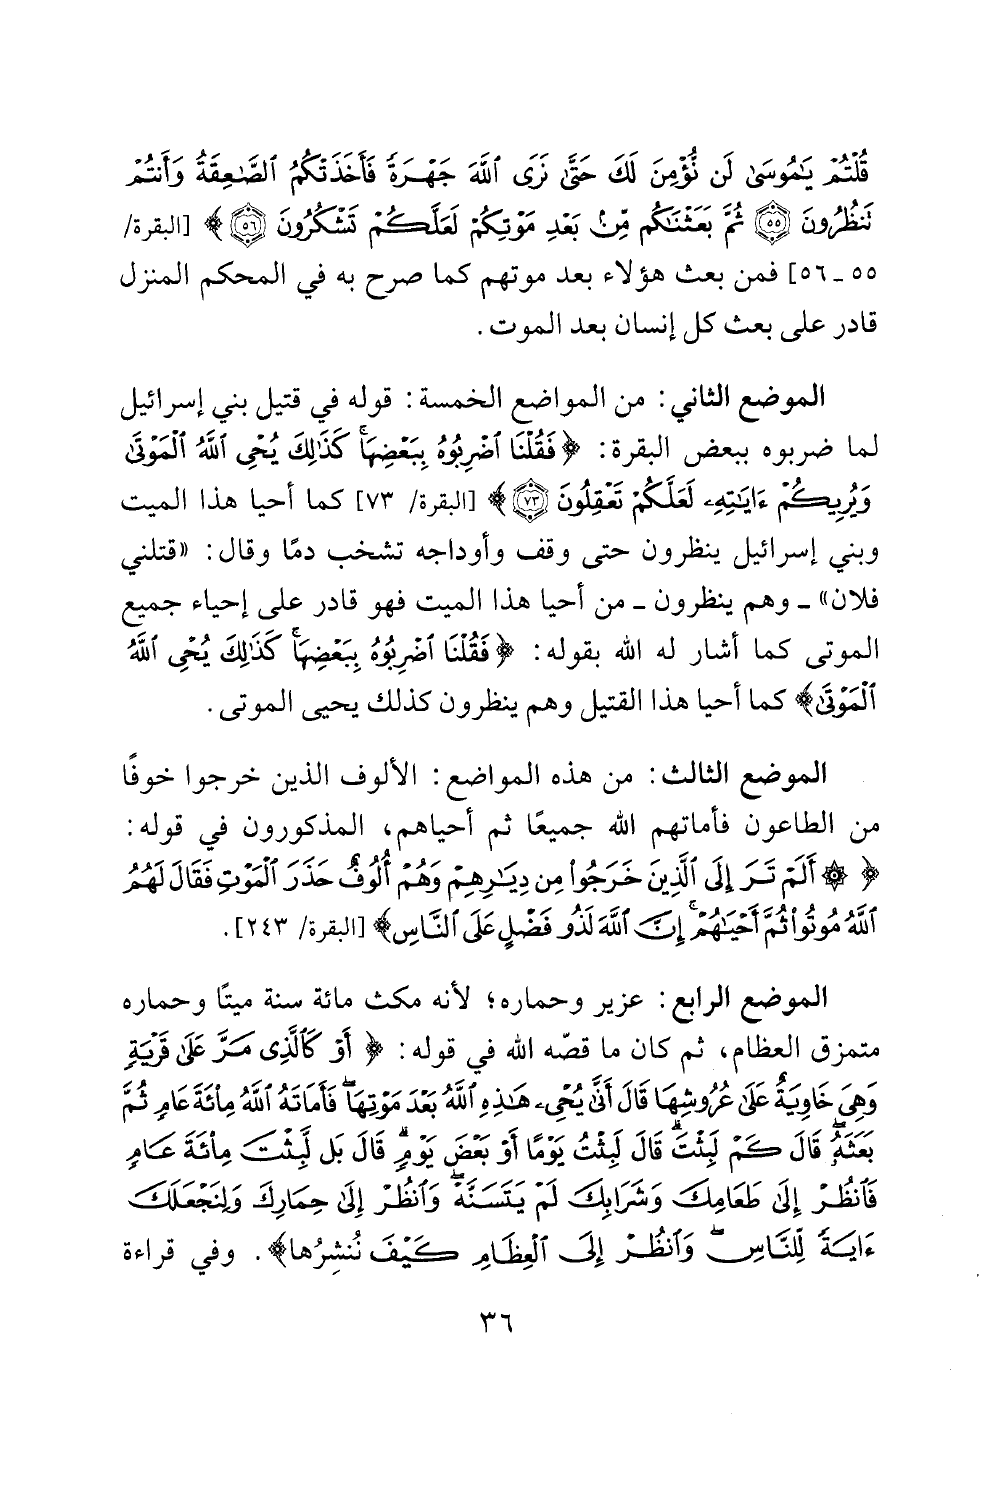 قُلْتُمْ يَٰمُوسَىٰ لَن نُّؤْمِنَ لَكَ حَتَّىٰ نَرَى ٱللَّهَ جَهْرَةً فَأَخَذَتْكُمُ ٱلصَّٰعِقَةُ وَأَنتُمْ
تَنظُرُونَ ۝٥٥ ثُمَّ بَعَثْنَٰكُم مِّنۢ بَعْدِ مَوْتِكُمْ لَعَلَّكُمْ تَشْكُرُونَ ۝٥٦ ﴾ [البقرة/
٥٥ ـ ٥٦] فمن بعث هؤلاء بعد موتهم كما صرح به في المحكم المنزل
قادر على بعث كل إنسان بعد الموت.
الموضع الثاني: من المواضع الخمسة: قوله في قتيل بني إسرائيل
لما ضربوه ببعض البقرة: ﴿ فَقُلْنَا ٱضْرِبُوهُ بِبَعْضِهَا ۚ كَذَٰلِكَ يُحْىِ ٱللَّهُ ٱلْمَوْتَىٰ
وَيُرِيكُمْ ءَايَٰتِهِۦ لَعَلَّكُمْ تَعْقِلُونَ ۝٧٣ ﴾ [البقرة/ ٧٣] كما أحيا هذا الميت
وبني إسرائيل ينظرون حتى وقف وأوداجه تشخب دمًا وقال: «قتلني
فلان» ـ وهم ينظرون ـ من أحيا هذا الميت فهو قادر على إحياء جميع
الموتى كما أشار له الله بقوله: ﴿ فَقُلْنَا ٱضْرِبُوهُ بِبَعْضِهَا ۚ كَذَٰلِكَ يُحْىِ ٱللَّهُ
ٱلْمَوْتَىٰ ﴾ كما أحيا هذا القتيل وهم ينظرون كذلك يحيى الموتى.
الموضع الثالث: من هذه المواضع: الألوف الذين خرجوا خوفًا
من الطاعون فأماتهم الله جميعًا ثم أحياهم، المذكورون في قوله:
﴿ ۞ أَلَمْ تَرَ إِلَى ٱلَّذِينَ خَرَجُوا۟ مِن دِيَٰرِهِمْ وَهُمْ أُلُوفٌ حَذَرَ ٱلْمَوْتِ فَقَالَ لَهُمُ
ٱللَّهُ مُوتُوا۟ ثُمَّ أَحْيَٰهُمْ ۚ إِنَّ ٱللَّهَ لَذُو فَضْلٍ عَلَى ٱلنَّاسِ ﴾ [البقرة/ ٢٤٣].
الموضع الرابع: عزير وحماره؛ لأنه مكث مائة سنة ميتًا وحماره
متمزق العظام، ثم كان ما قصّه الله في قوله: ﴿ أَوْ كَٱلَّذِى مَرَّ عَلَىٰ قَرْيَةٍ
وَهِىَ خَاوِيَةٌ عَلَىٰ عُرُوشِهَا قَالَ أَنَّىٰ يُحْىِۦ هَٰذِهِ ٱللَّهُ بَعْدَ مَوْتِهَا ۖ فَأَمَاتَهُ ٱللَّهُ مِا۟ئَةَ عَامٍ ثُمَّ
بَعَثَهُۥ ۖ قَالَ كَمْ لَبِثْتَ ۖ قَالَ لَبِثْتُ يَوْمًا أَوْ بَعْضَ يَوْمٍ ۖ قَالَ بَل لَّبِثْتَ مِا۟ئَةَ عَامٍ
فَٱنظُرْ إِلَىٰ طَعَامِكَ وَشَرَابِكَ لَمْ يَتَسَنَّهْ ۖ وَٱنظُرْ إِلَىٰ حِمَارِكَ وَلِنَجْعَلَكَ
ءَايَةً لِّلنَّاسِ ۖ وَٱنظُرْ إِلَى ٱلْعِظَامِ كَيْفَ نُنشِرُها ﴾. وفي قراءة
٣٦